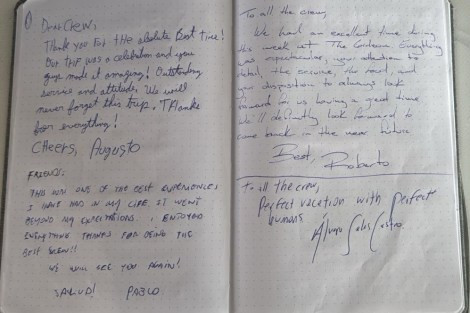 Dear Crew,
Thank you for the absolute Best Time!
Our trip was a celebration and you
guys made it amazing! Outstanding
service and attitude. We will
never forget this trip. Thanks
for everything!
Cheers, Augusto
FRIENDS:
THIS WAS ONE OF THE BEST EXPERIENCES
I HAVE HAD IN MY LIFE. IT WENT
BEYOND MY EXPECTATIONS. I ENJOYED
EVERYTHING THANKS FOR BEING THE
BEST CREW!!
WE WILL SEE YOU AGAIN!
SALUD! PABLO
To all the crew,
We had an excellent time during
this week at The Everything
was espectacular, your attention to
detail, the service, the food, and
your disposition to always look
forward for us having a great time
We'll definitly look forward to
come back in the near future
Best, Roberto
To all the crew,
Perfect vacation with perfect
humans